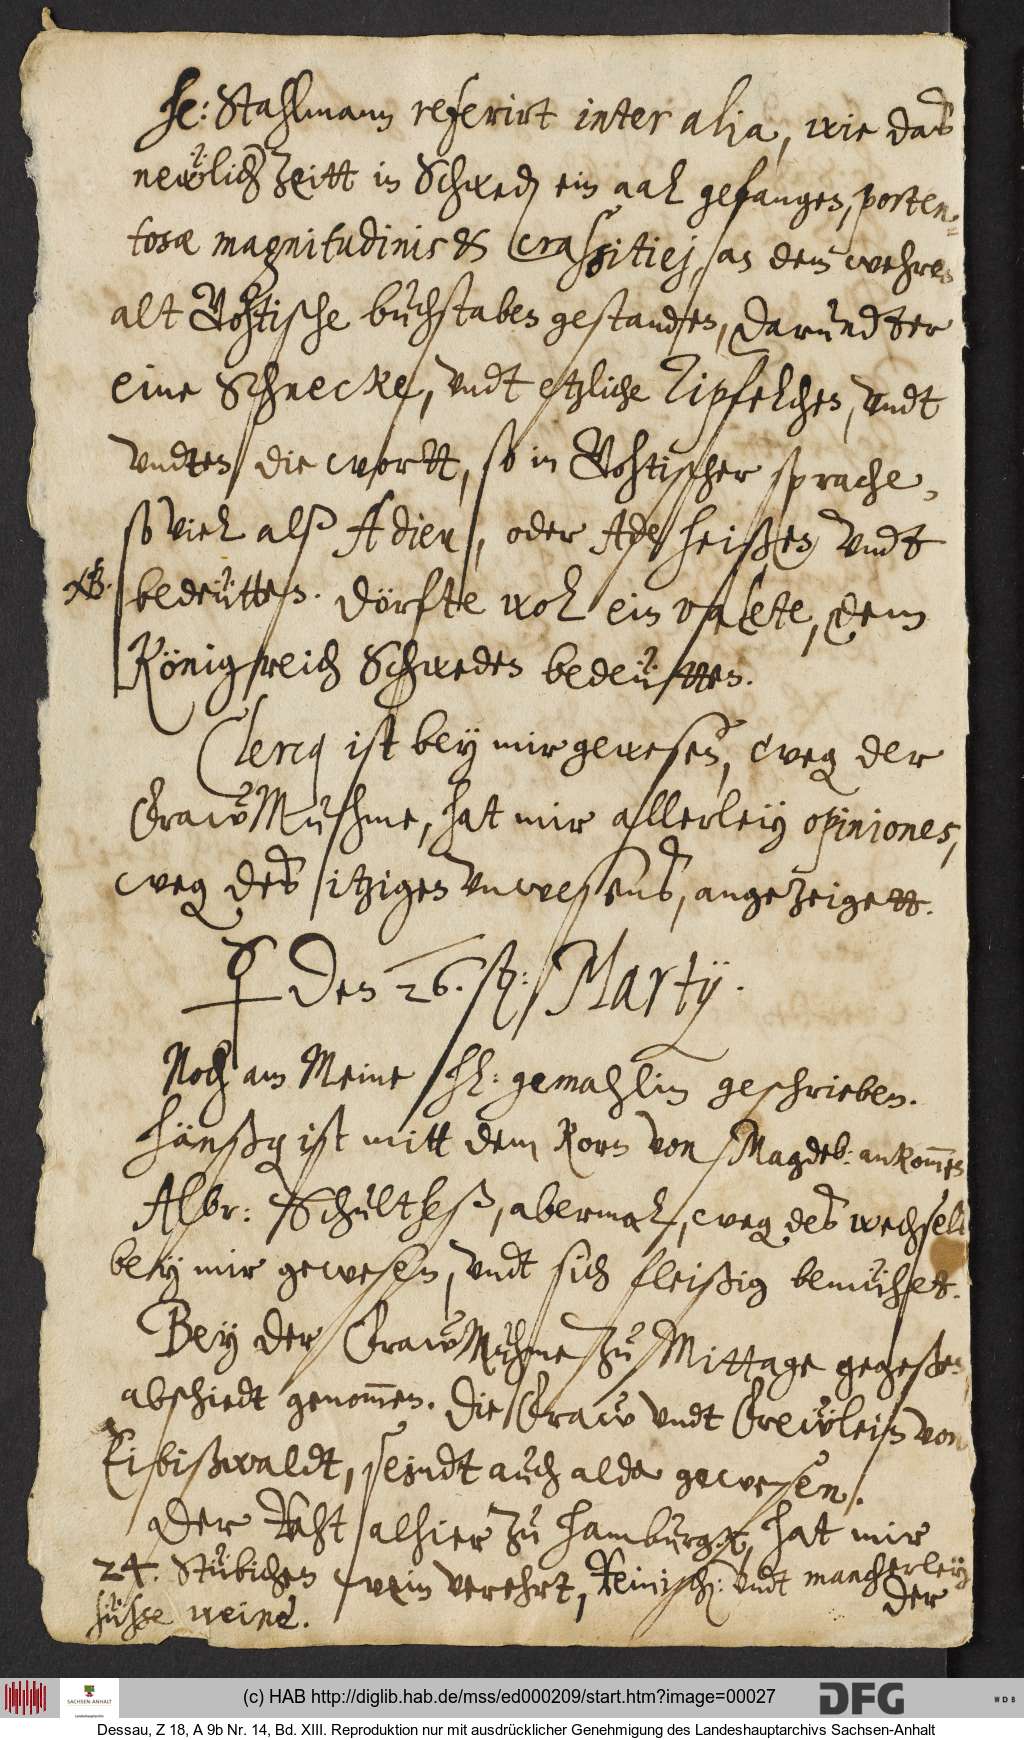 He: Stahlmann referirt inter alia, wie das
newlich Zeitt in Schwed ein aal gefangen, porten=
tosæ magnitudinis & crassitiej, an dem wehren
alt Gohtische buchstaben gestanden, darundter
eine Schnecke, undt etzliche Zipfelchen, undt
undten die wortt, so in Gohtischer sprache,
so viel alß Adieu, oder Ade heißen undt
NB. bedeutten. Dörfte wol ein valete, dem
Königreich Schweden bedeutten.
Clercq ist bey mir gewesen, weg der
Fraw Muhme, hat mir allerley opiniones,
weg des itzigen unwesens, angezeigett.
♀ Den 26. Martij.
Noch am Meine Hl: gemahlin geschrieben.
Hänßg ist mitt dem Korn von Magdeb: ankom̄en
Albr: Schultheß, abermal, weg des wechsels
bey mir gewesen, undt sich fleißig bemühet.
Bey der Fraw Muhme zu Mittage gegeßen
abschiedt genom̄en. Die Fraw undt Frewlein von
Eibißwaldt, seindt auch alda gewesen.
Der Raht alhier zu Hamburgk, hat mir
24. Stübichen wein verehrt, Reinisch: undt mancherley
süsse weine. der
(c) HAB http://diglib.hab.de/mss/ed000209/start.htm?image=00027
SACHSEN-ANHALT
Landeshauptarchiv
DFG
WDB
Dessau, Z 18, A 9b Nr. 14, Bd. XIII. Reproduktion nur mit ausdrücklicher Genehmigung des Landeshauptarchivs Sachsen-Anhalt